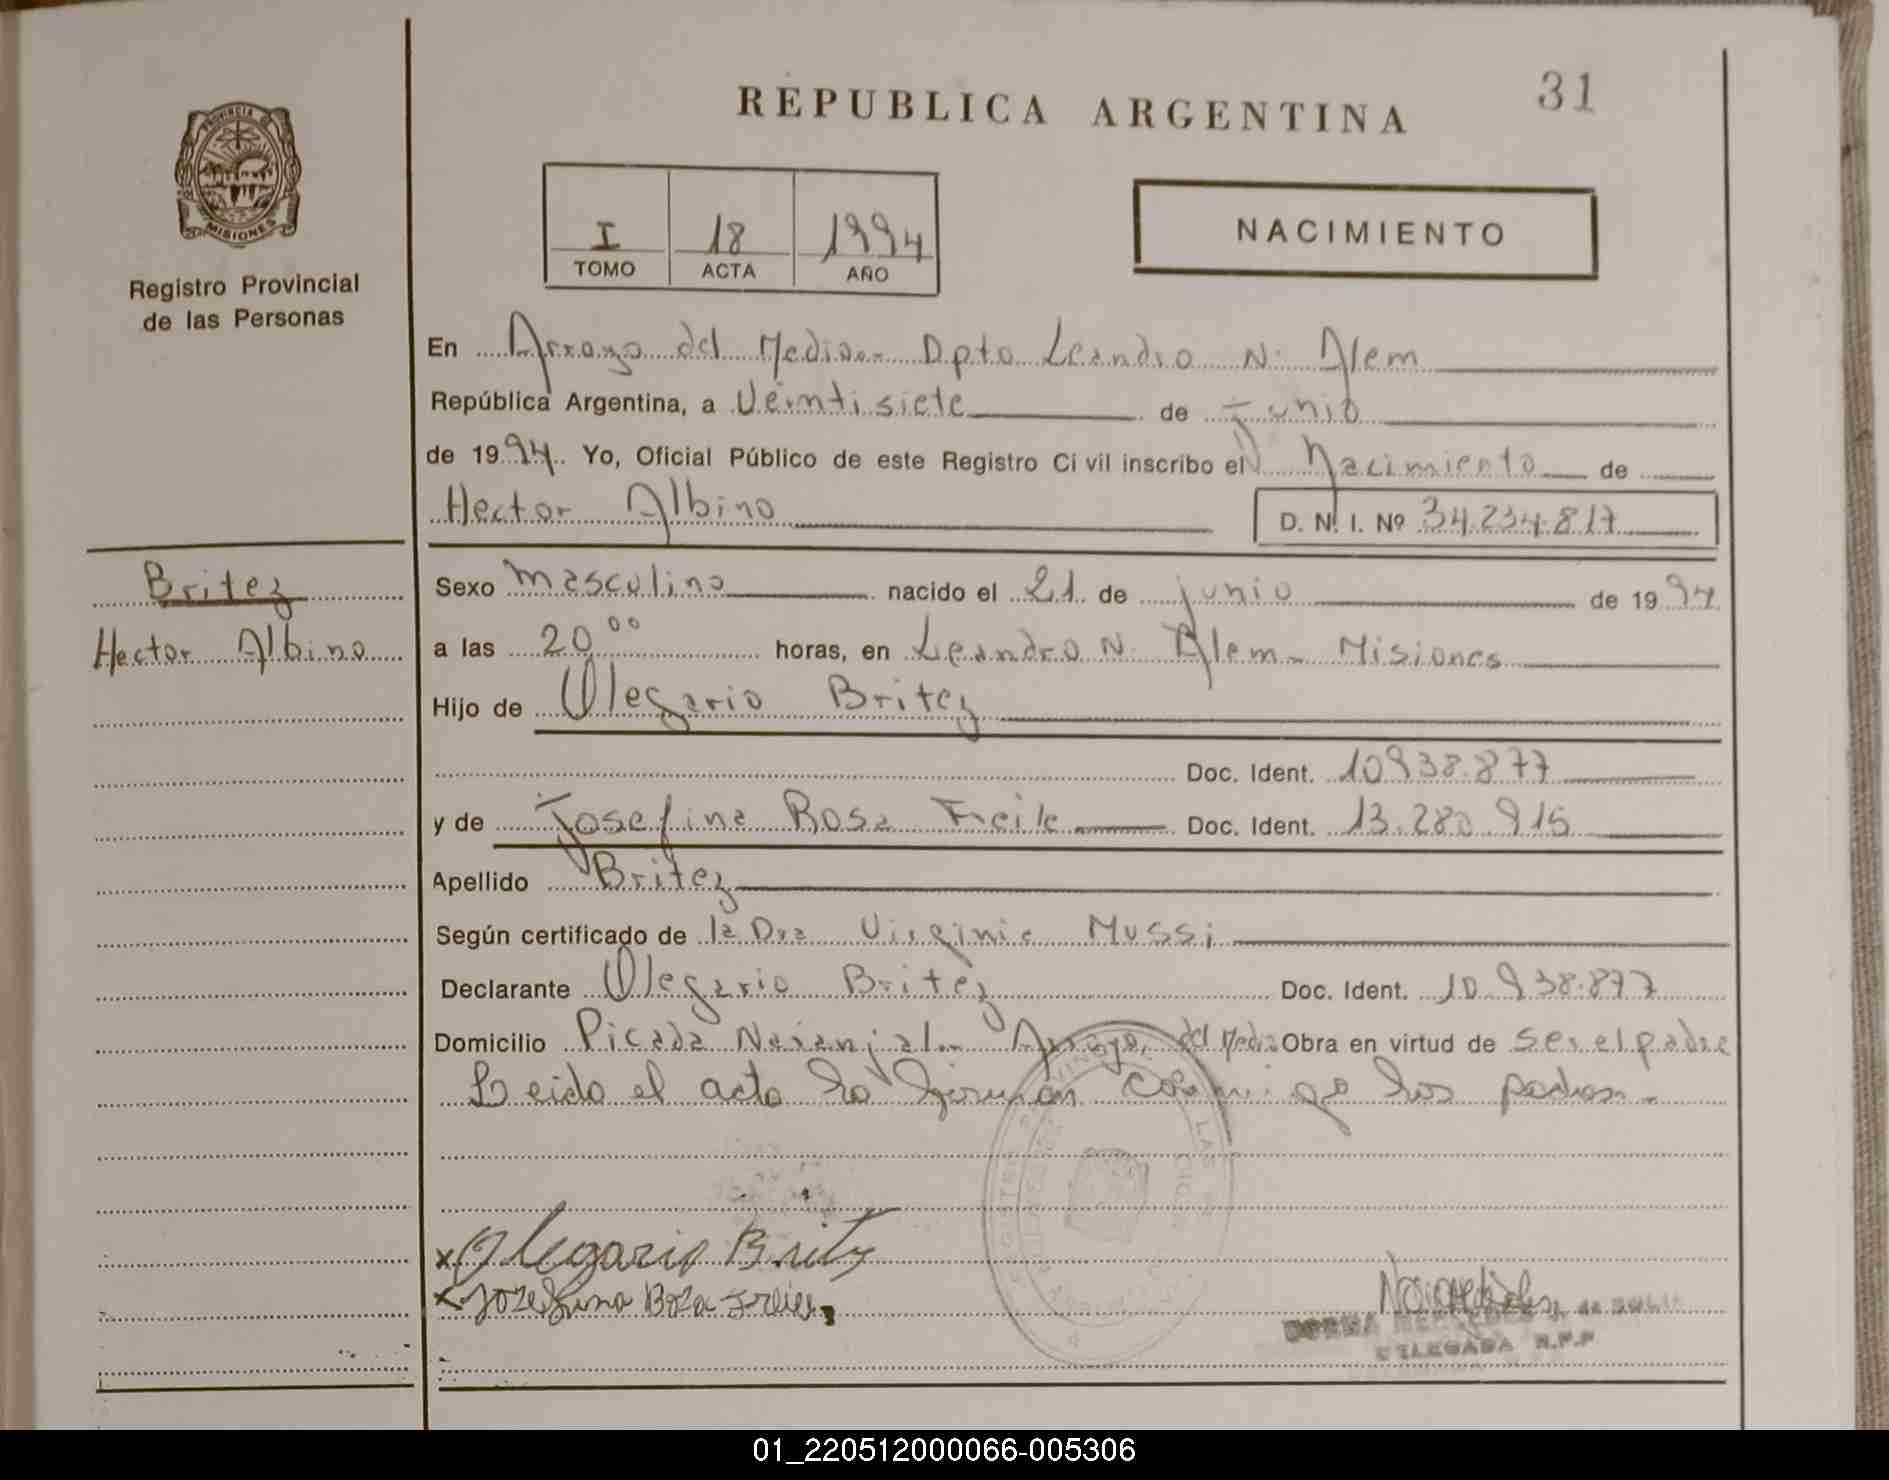 REPUBLICA ARGENTINA
31
PROVINCIA DE
MISIONES
Registro Provincial
de las Personas
I
18
1994
TOMO
ACTA
AÑO
NACIMIENTO
En Arroyo del Medio - Dpto Leandro N. Alem
República Argentina, a Veintisiete de Junio
de 1994. Yo, Oficial Público de este Registro Civil inscribo el Nacimiento de
Hector Albino
D. N. I. Nº 34.234.817
Britez
Hector Albino
Sexo masculino nacido el 21 de junio de 1994
a las 20⁰⁰ horas, en Leandro N. Alem - Misiones
Hijo de Olegario Britez
Doc. Ident. 10938.877
y de Josefina Rosa Freile Doc. Ident. 13.280.915
Apellido Britez
Según certificado de la Dra Virginia Mussi
Declarante Olegario Britez Doc. Ident. 10.938.877
Domicilio Picada Naranjal - Arroyo del Medio Obra en virtud de ser el padre
Leido el acta la firman conmigo los padres.-
x Olegario Britez
x
DELEGADA R.P.P
01_220512000066-005306